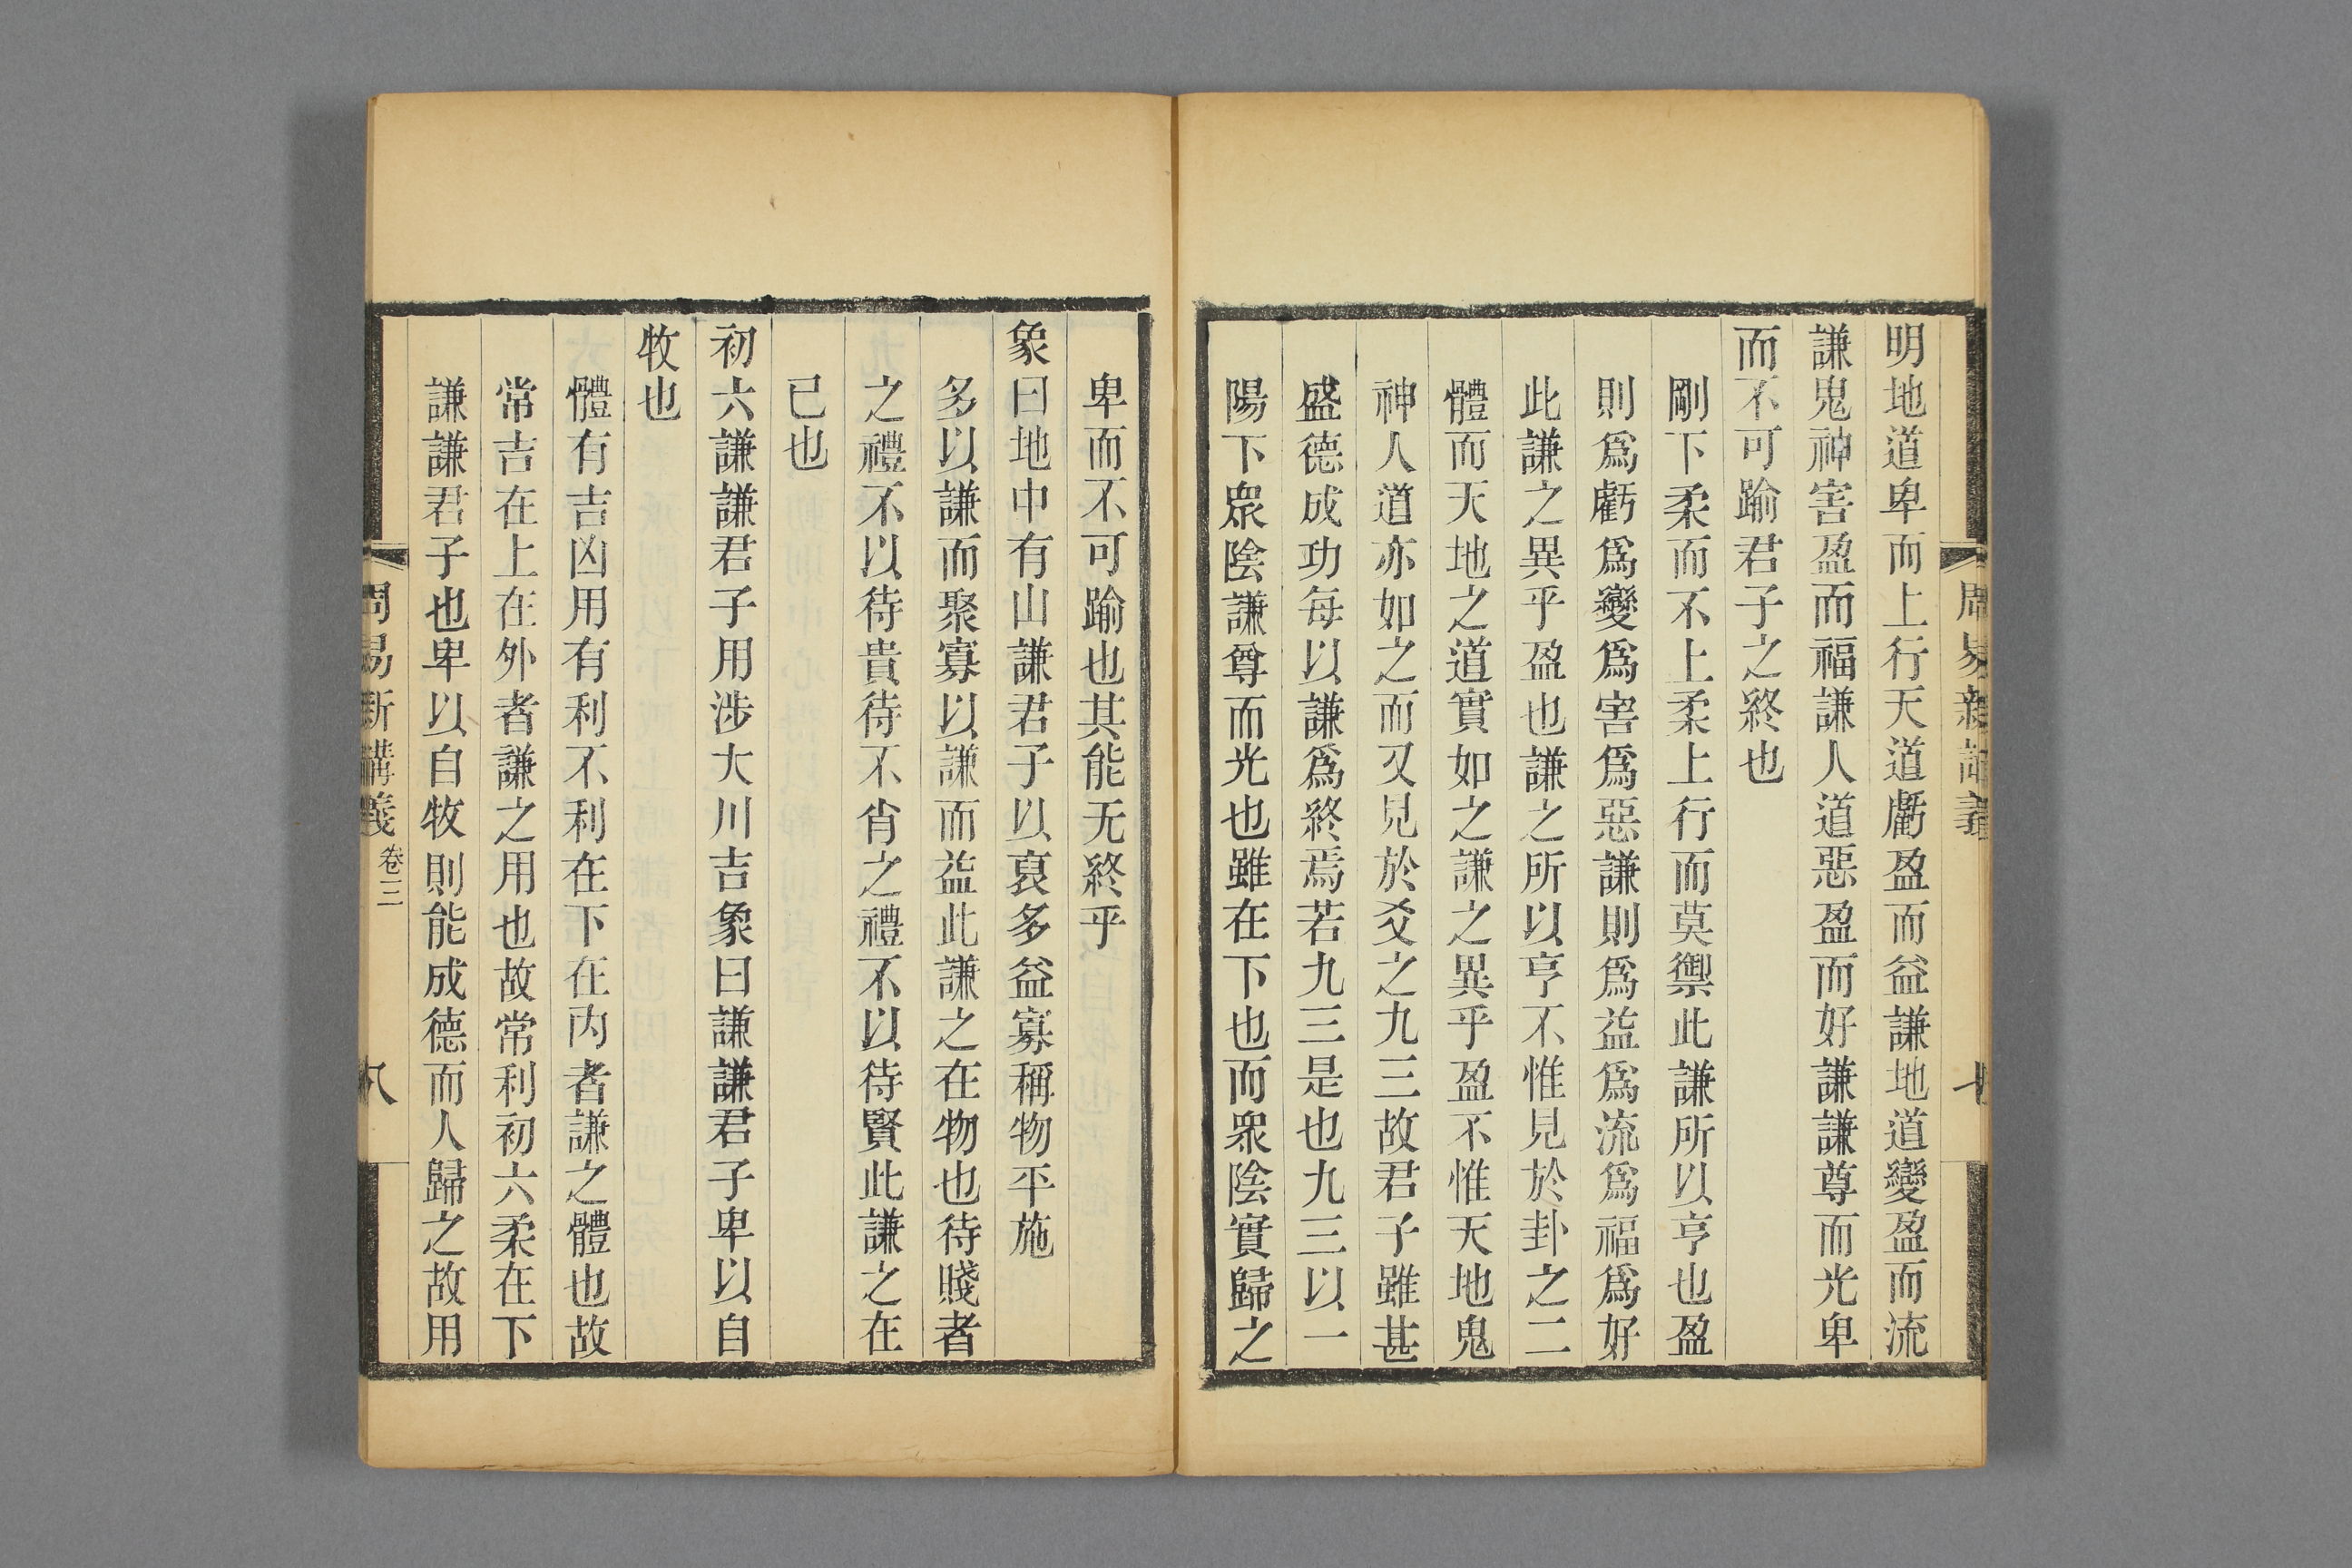 明地道卑而上行天道虧盈而益謙地道變盈而流
謙鬼神害盈而福謙人道惡盈而好謙謙尊而光卑
而不可踰君子之終也
剛下柔而不上柔上行而莫禦此謙所以亨也盈
則爲虧爲變爲害爲惡謙則爲益爲流爲福爲好
此謙之異乎盈也謙之所以亨不惟見於卦之二
體而天地之道實如之謙之異乎盈不惟天地鬼
神人道亦如之而又見於爻之九三故君子雖甚
盛德成功每以謙爲終焉若九三是也九三以一
陽下眾陰謙尊而光也雖在下也而眾陰實歸之
卑而不可踰也其能无終乎
象曰地中有山謙君子以裒多益寡稱物平施
多以謙而聚寡以謙而益此謙之在物也待賤者
之禮不以待貴待不肖之禮不以待賢此謙之在
己也
初六謙謙君子用涉大川吉象曰謙謙君子卑以自
牧也
體有吉凶用有利不利在下在內者謙之體也故
常吉在上在外者謙之用也故常利初六柔在下
謙謙君子也卑以自牧則能成德而人歸之故用
周易新講義 卷三 八